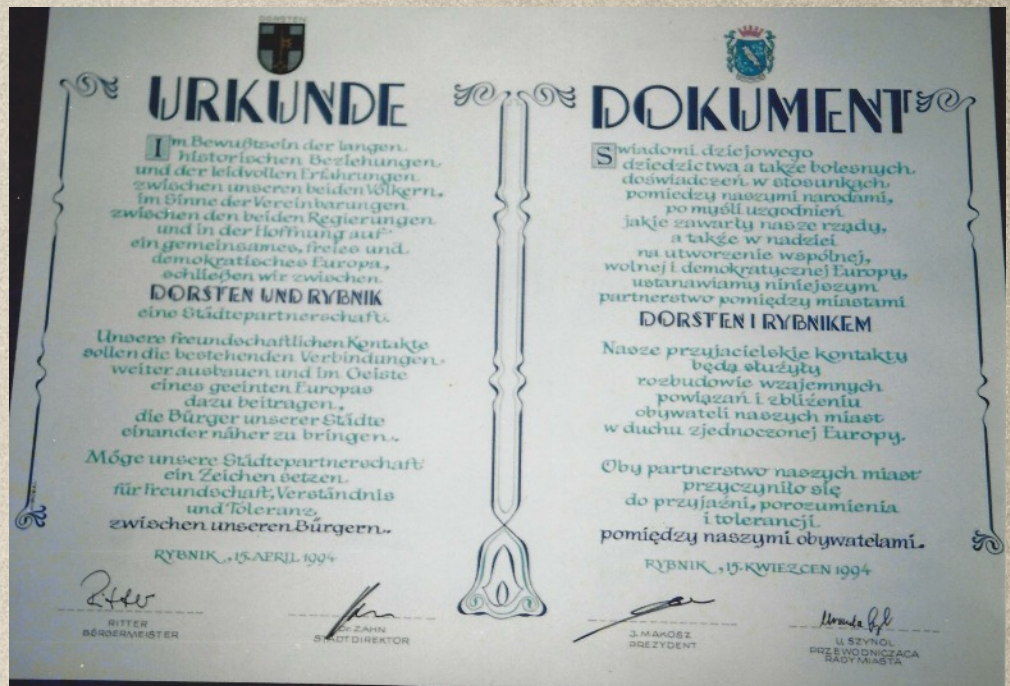 DORSTEN
URKUNDE
Im Bewußtsein der langen
historischen Beziehungen
und der leidvollen Erfahrungen
zwischen unseren beiden Völkern,
im Sinne der Vereinbarungen
zwischen den beiden Regierungen
und in der Hoffnung auf
ein gemeinsames, freies und
demokratisches Europa,
schließen wir zwischen
DORSTEN UND RYBNIK
eine Städtepartnerschaft.
Unsere freundschaftlichen Kontakte
sollen die bestehenden Verbindungen
weiter ausbauen und im Geiste
eines geeinten Europas
dazu beitragen,
die Bürger unserer Städte
einander näher zu bringen.
Möge unsere Städtepartnerschaft
ein Zeichen setzen
für Freundschaft, Verständnis
und Toleranz
zwischen unseren Bürgern.
RYBNIK, 15. APRIL 1994
Ritter
RITTER
BÜRGERMEISTER
DR. ZAHN
STADTDIREKTOR
DOKUMENT
Swiadomi dziejowego
dziedzictwa a także bolesnych
doświadczeń w stosunkach
pomiedzy naszymi narodami,
po myśli uzgodnień
jakie zawarły nasze rządy,
a także w nadziei
na utworzenie wspólnej,
wolnej i demokratycznej Europy,
ustanawiamy niniejszym
partnerstwo pomiędzy miastami
DORSTEN I RYBNIKEM
Nasze przyjacielskie kontakty
będą służyły
rozbudowie wzajemnych
powiązań i zbliżeniu
obywateli naszych miast
w duchu zjednoczonej Europy.
Oby partnerstwo naszych miast
przyczyniło się
do przyjaźni, porozumienia
i tolerancji
pomiędzy naszymi obywatelami.
RYBNIK, 15. KWIEZCEN 1994
J. MAKOSZ
PREZYDENT
U. SZYNOL
PRZEWODNICZACA
RADY MIASTA